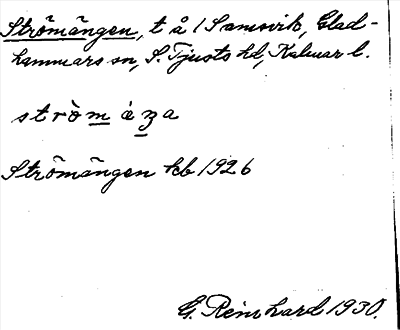 Strömängen, t å 1 Samsvik, Glad-
hammars sn, S. Tjusts hd, Kalmar l.
strò̀m
Strömängen kb 1926
G. Reinhard 1930.